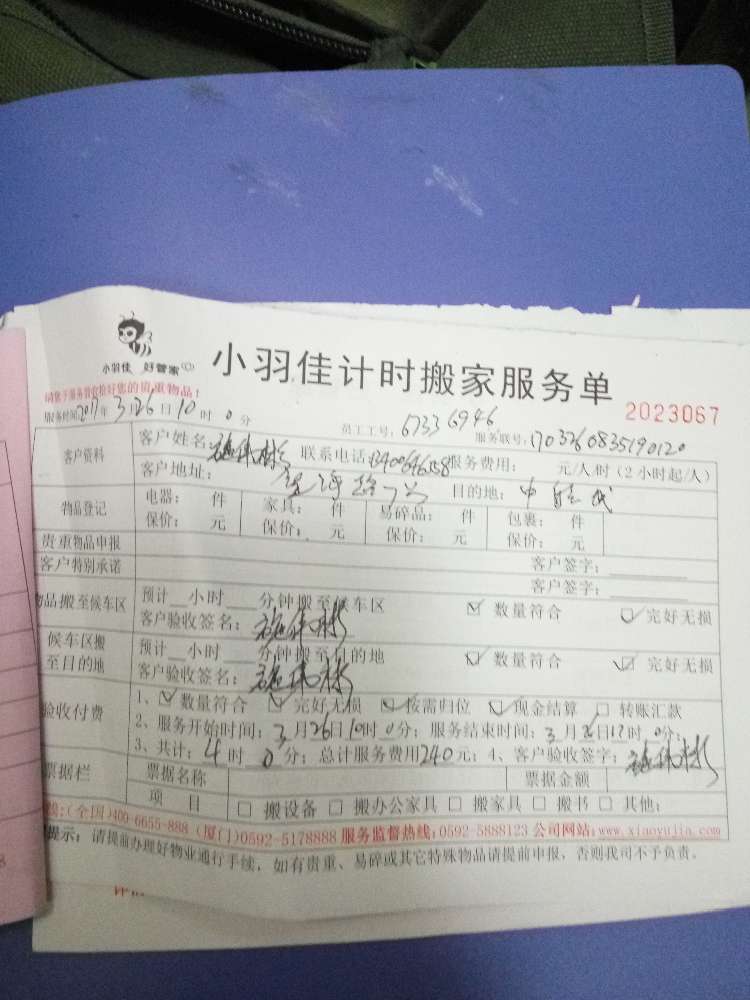 小羽佳 好管家
小羽佳计时搬家服务单
2023067
请您于服务前收拾好您的贵重物品!
服务时间2017年3月26日10时0分
员工工号:67336946
服务联号:1703260835190120
客户资料
客户姓名: 联系电话: 服务费用: 元/人时(2小时起/人)
客户地址: 目的地:
物品登记
电器: 件 家具: 件 易碎品: 件 包裹: 件
保价: 元 保价: 元 保价: 元 保价: 元
贵重物品申报
客户签字:
客户特别承诺
客户签字:
物品搬至候车区
预计__小时___分钟搬至候车区 数量符合 完好无损
客户验收签名:
候车区搬至目的地
预计__小时___分钟搬至目的地 数量符合 完好无损
客户验收签名:
验收付费
1、数量符合 完好无损 按需归位 现金结算 转账汇款
2、服务开始时间:3月26日10时0分;服务结束时间:3月 日 时0分;
3、共计:4时0分;总计服务费用240元;4、客户验收签字:
票据栏
票据名称 票据金额
项 目 搬设备 搬办公家具 搬家具 搬书 其他:
线:(全国)400-6655-888 (厦门)0592-5178888 服务监督热线:0592-5888123 公司网站:www.xiaoyujia.com
提示:请提前办理好物业通行手续,如有贵重、易碎或其它特殊物品请提前申报,否则我司不予负责。